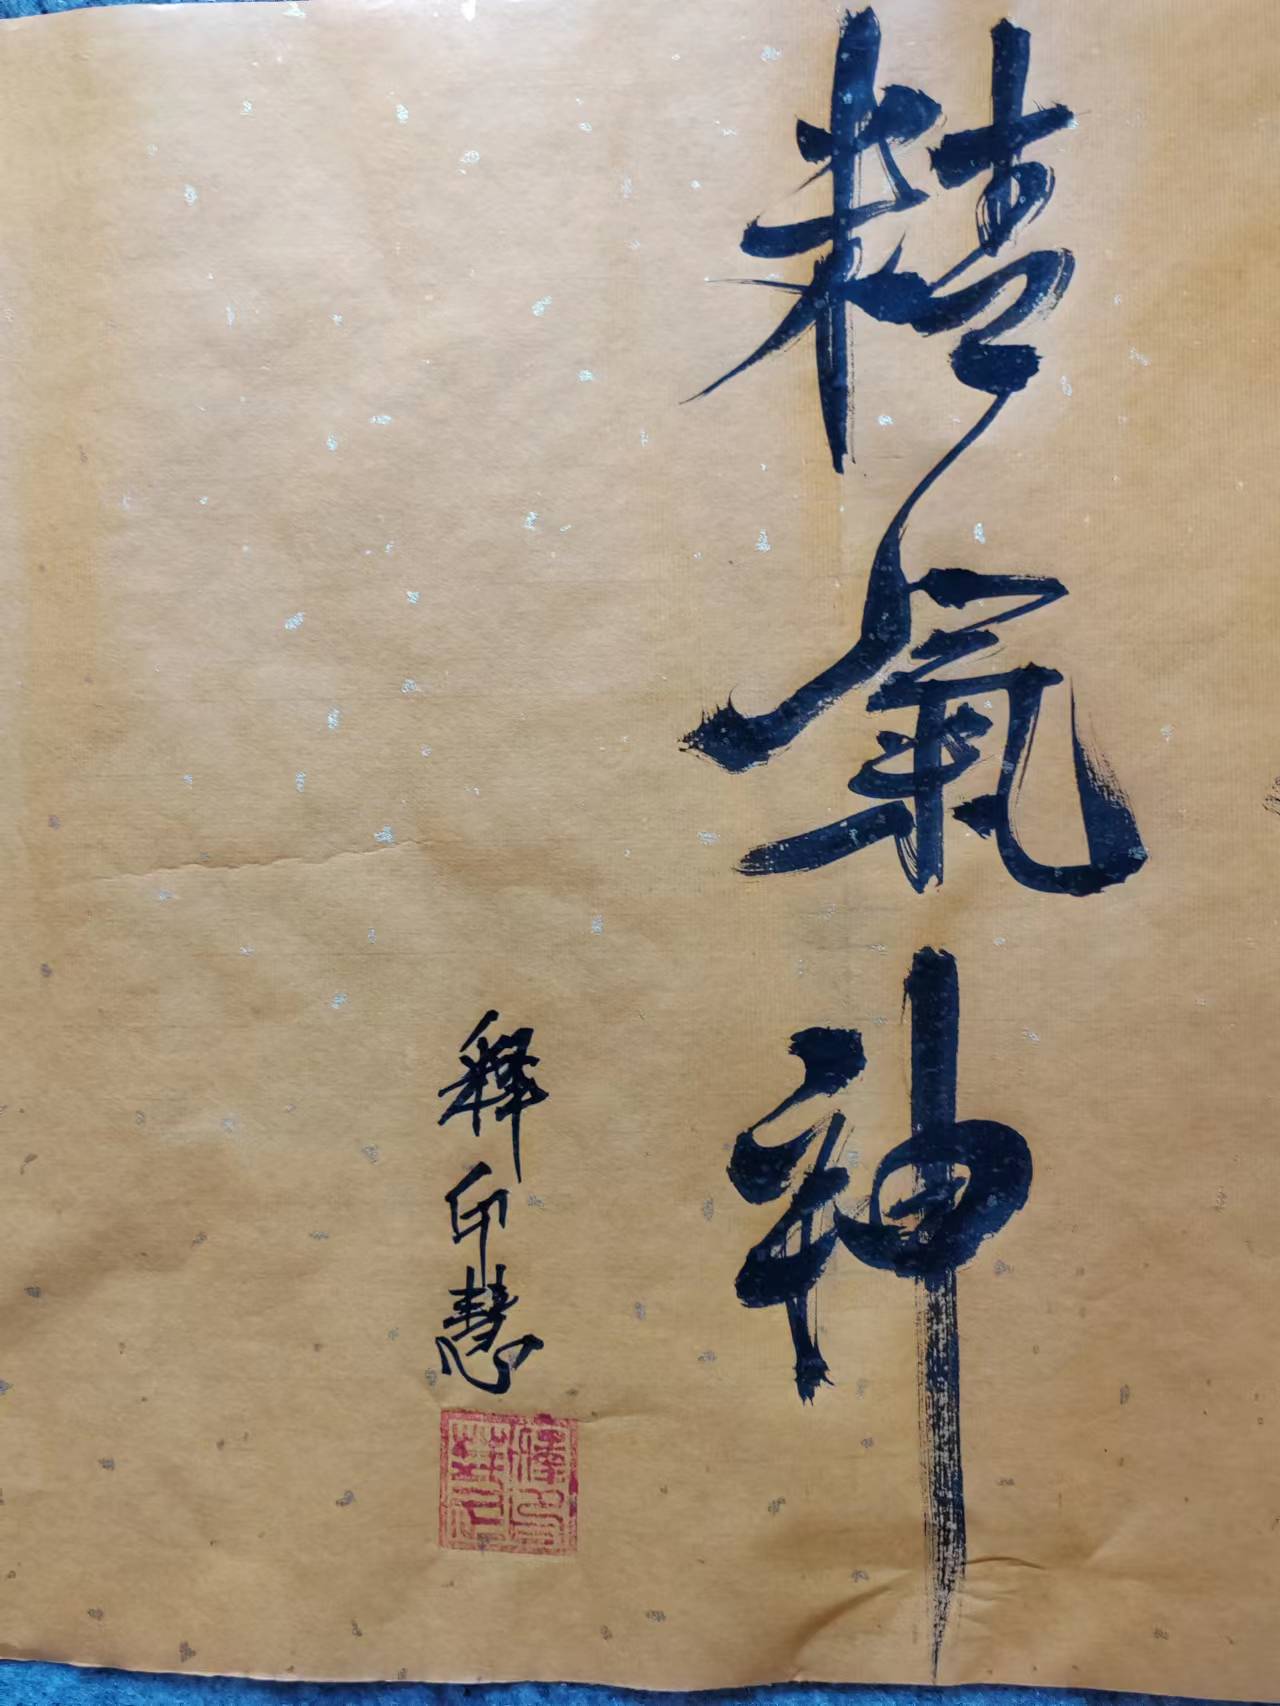 精氣神
釋印慧